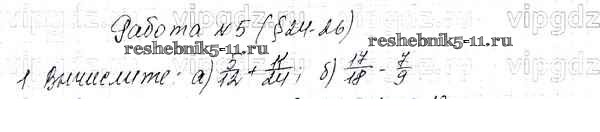 vipgdz vipgdz vipgdz vipgdz
Работа №5 (§24-26)
reshebnik5-11.ru
reshebnik5-11.ru
1 Вычислите: а) 5/12 + 11/24; б) 17/18 - 7/9